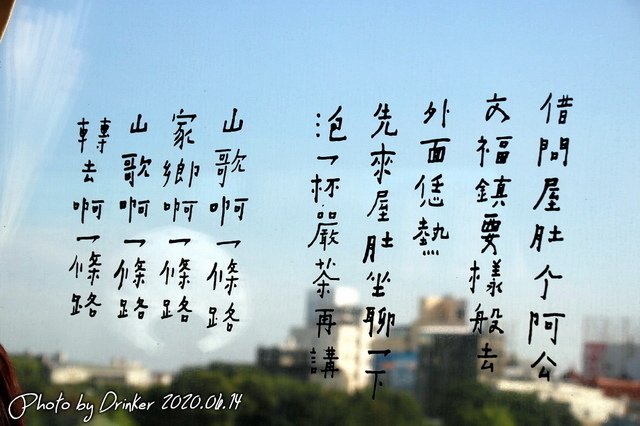 借問屋肚个阿公
六福鎮要樣般去
外面恁熱
先來屋肚坐聊一下
泡一杯嚴茶再講
山歌啊一條路
家鄉啊一條路
山歌啊一條路
轉去啊一條路
Photo by Drinker 2020.06.14